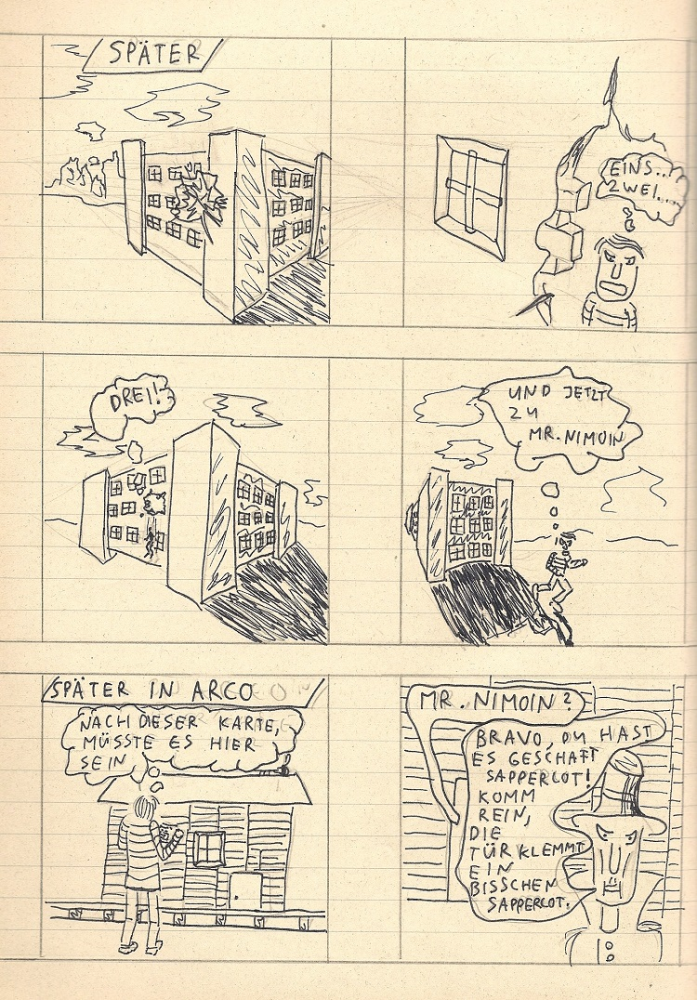 SPÄTER
EINS...
ZWEI....
DREI!
UND JETZT
ZU
MR. NIMOIN
SPÄTER IN ARCO
NACH DIESER KARTE,
MÜSSTE ES HIER
SEIN
MR. NIMOIN?
BRAVO, DU HAST
ES GESCHAFT
SAPPERLOT!
KOMM
REIN,
DIE
TÜR KLEMMT
EIN
BISSCHEN
SAPPERLOT.